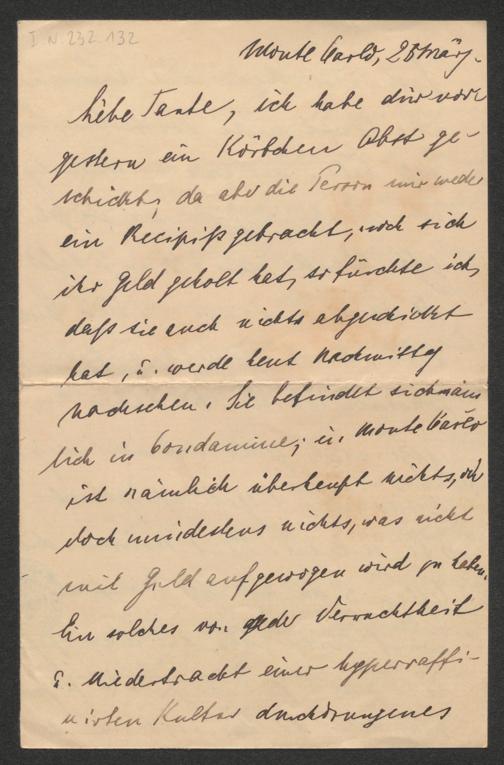 I.N. 232.132
Monte Carlo, 28 März.
Liebe Tante, ich habe dir vor-
gestern ein Körbchen Obst ge-
schickt, da aber die Person mir weder
ein Recipiß gebracht, noch sich
ihr Geld geholt hat, so fürchte ich,
daß sie auch nichts abgeschickt
hat, u. werde heut Nachmittag
nachsehen. Sie befindet sich näm
lich in Condamine; in Monte Carlo
ist nämlich überhaupt nichts,
doch mindestens nichts, was nicht
mit Gold aufgewogen wird zu haben.
Ein solches von jeder Verruchtheit
u. Niedertracht einer hyperraffi-
nirten Kultur durchdrungenes